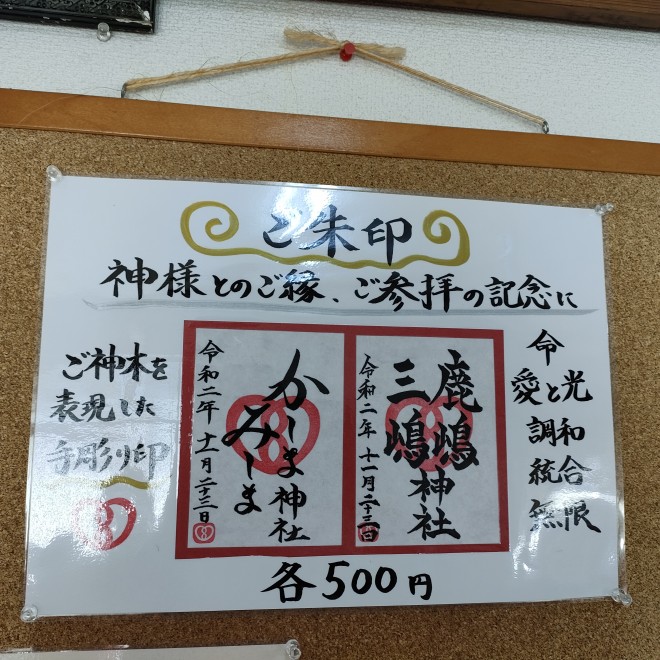 ご朱印
神様とのご縁、ご参拝の記念に
ご神木を
表現した
手彫り印
令和二年十一月二十三日
かしま
みしま
神社
令和二年十一月二十三日
鹿嶋
三嶋
神社
命
愛と光
調和
統合
無限
各500円